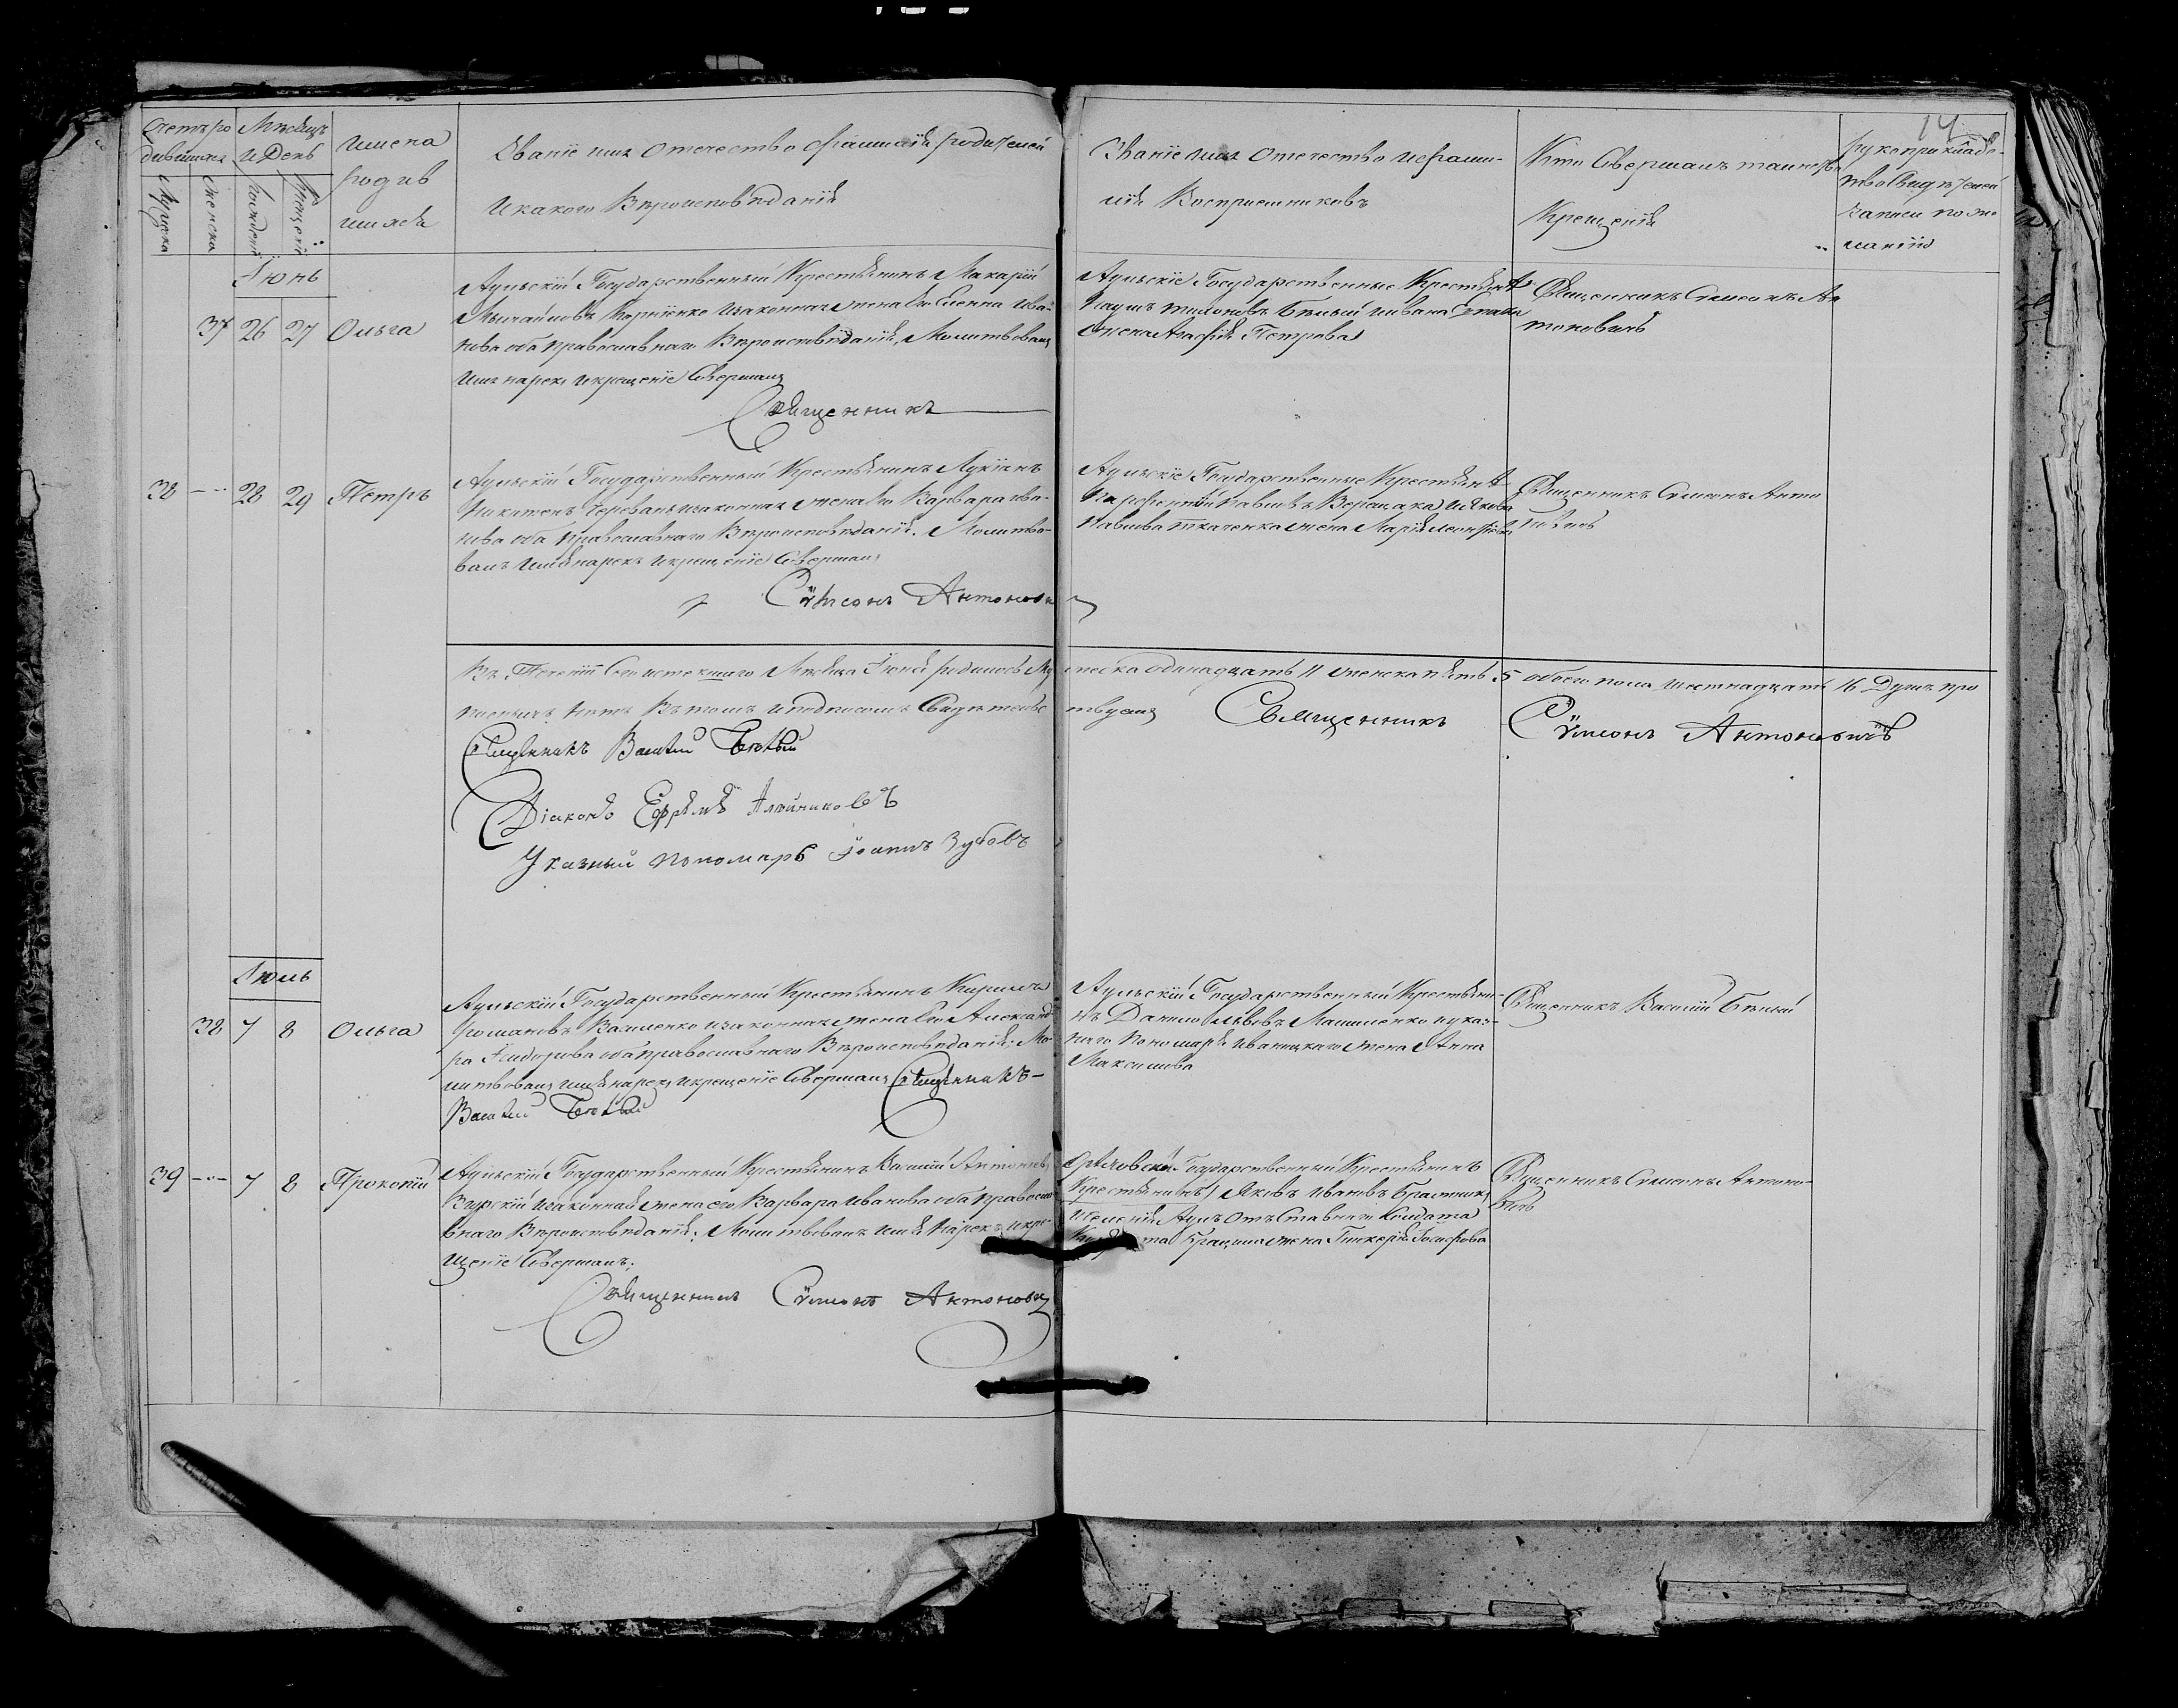 14
Счетъ ро
дившихся
Мѣсяцъ
и День
Мужска
Женска
Рожденія
Крещенія
Имена
родив
шихся
Званіе имя отечество и фамилія родителей
и какого Вѣроисповѣданія
Званіе имя отечество и фами-
лія Воспріемниковъ
Кто Совершалъ таинство
Крещенія
рукоприкладс-
тво Свидѣтелей
записи по же
ланію
Іюнь
37 26 27 Ольга
Аульскій Государственный Крестьянинъ Макарій
Михайловъ Корніенко и законная жена его Елена Ива-
нова оба православнаго Вѣроисповѣданія, Молитвовалъ
имя нарекъ и крещеніе Совершалъ
Священникъ
Аульскіе Государственные Крестьяне
Наумъ Бѣлый и Ивана
жена Агафія Петрова
Священникъ Симеонъ Ан
тоновичъ
38 -- 28 29 Петръ
Аульскій Государственный Крестьянинъ Лукіянъ
Никитинъ и законная жена его Варвара Ива-
нова оба православнаго Вѣроисповѣданія. Молитво-
валъ имя нарекъ и крещеніе Совершалъ
Сѵмеонъ Антоновичъ
Аульскіе Государственные Крестьяне
Парфентій Павловъ Верещака и Якова
Павлова Ткаченка жена Марія
Священникъ Симеонъ Анто
новичъ
Въ теченіи Сего истекшаго Мѣсяца Іюня родилось Му жеска одинадцать 11 женска пять 5 обоего пола шестнадцать 16 Душъ про
пискныхъ нѣтъ Въ томъ и подписомъ Свидѣтельс твуемъ Священникъ Сѵмеонъ Антоновичъ
Священникъ Василій Бѣлый
Діаконъ Ефремъ Алейниковъ
Указный пономарь Іоаннъ Зубовъ
Іюль
38 7 8 Ольга
Аульскій Государственный Крестьянинъ Кирилъ
Романовъ Василенко и законная жена его Александ-
ра Ѳедорова оба православнаго Вѣроисповѣданія; Мо-
литвовалъ имя нарекъ и крещеніе Совершалъ Священникъ-
Василій Бѣлый
Аульскій Государственный Крестьяни-
нъ Данило Львовъ Мащенко и указ-
наго пономаря Иваницкаго жена Анна
Максимова
Священникъ Василій Бѣлый
39 -- 7 8 Прокопій
Аульскій Государственный Крестьянинъ Василій Антоновъ
и законная жена его Варвара Иванова оба правосла-
внаго Вѣроисповѣданія; Молитвовалъ имя нарекъ и кре-
щеніе Совершалъ;
Священникъ Сѵмеонъ Антоновичъ
Орѣховскій Государственный Крестьянинъ
Крестьянинъ) Яковъ Ивановъ
и селенія Аулъ отъ Ставнаго Солдата
жена Гликерія Іосифова
Священникъ Симеонъ Антоно-
вичъ